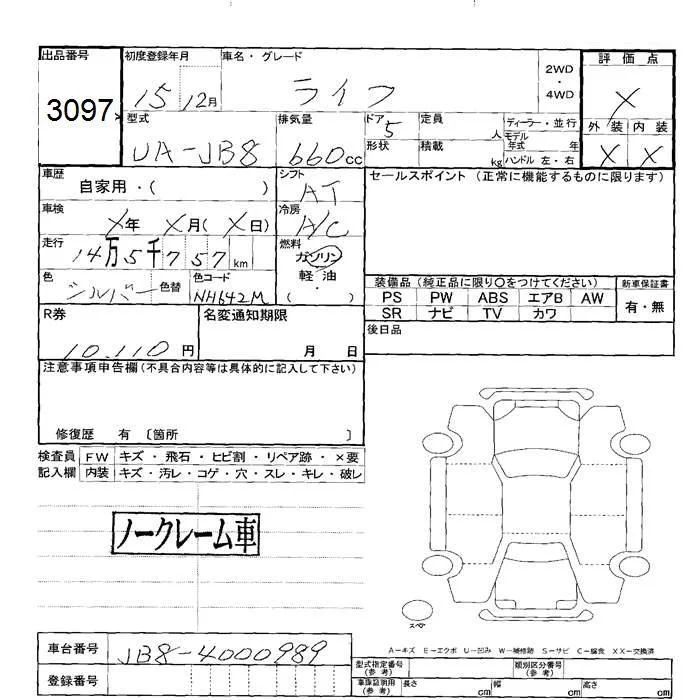 出品番号
3097
初度登録年月
15 12月
車名・グレード
ライフ
2WD
・
4WD
評価点
X
外装 内装
X X
型式
UA-JB8
排気量
660cc
ドア
5
形状
定員
人
積載
kg
ディーラー・並行
モデル
年式 年
ハンドル 左・右
車歴
自家用・( )
シフト
AT
車検
X年 X月(X日)
冷房
A/C
走行
14万5千757km
燃料
ガソリン
軽油
・
( )
色
シルバー
色替
色コード
NH642M
セールスポイント (正常に機能するものに限ります)
装備品 (純正品に限り〇をつけてください)
PS PW ABS エアB AW
SR ナビ TV カワ
新車保証書
有・無
R券
10,110円
名変通知期限
月 日
後日品
注意事項申告欄(不具合内容等は具体的に記入して下さい)
修復歴 有 〔箇所 〕
検査員
記入欄
FW キズ・飛石・ヒビ割・リペア跡・×要
内装 キズ・汚レ・コゲ・穴・スレ・キレ・破レ
ノークレーム車
スペア
A-キズ E-エクボ U-凹み W-補修跡 S-サビ C-腐食 XX-交換済
車台番号
JB8-4000989
登録番号
型式指定番号
(参考)
類別区分番号
(参考)
車庫証明用
(参考)
長さ cm 幅 cm 高さ cm